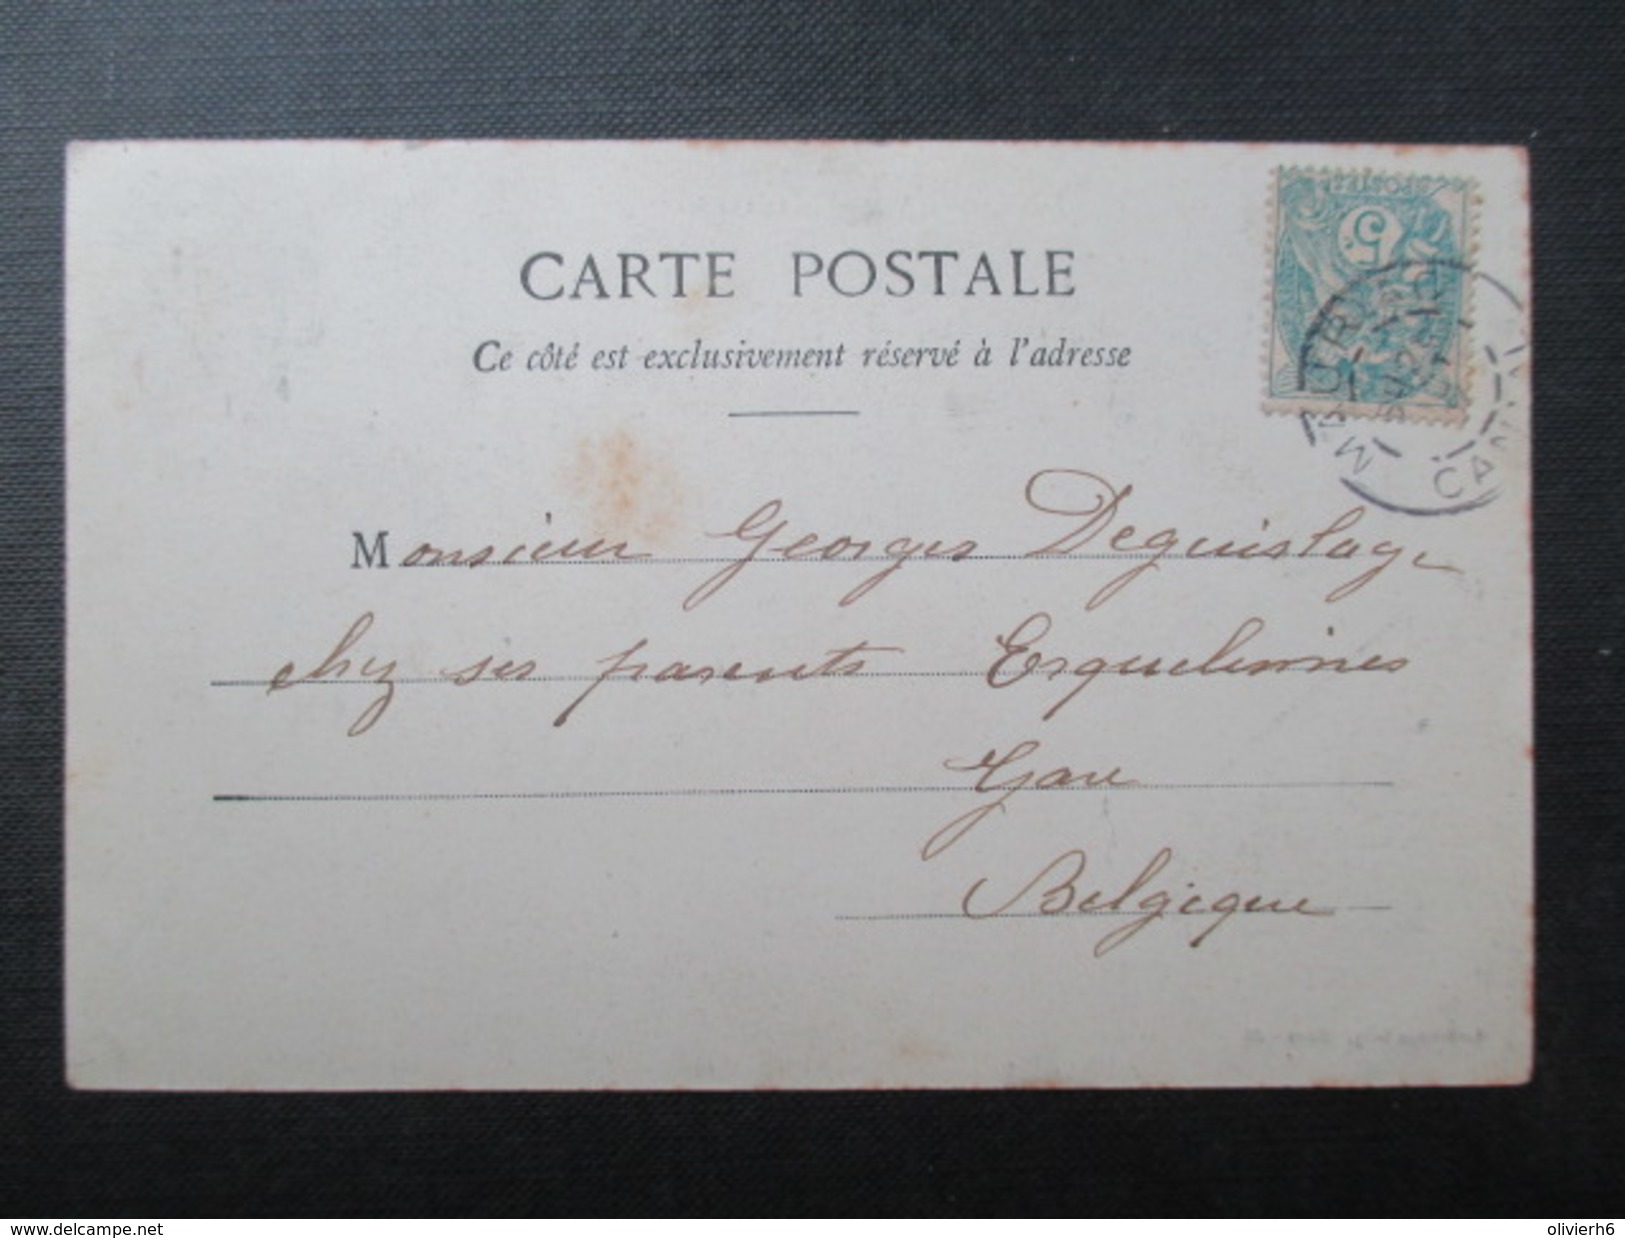 CARTE POSTALE
Ce côté est exclusivement réservé à l'adresse
POSTES
5
CANTAL
Monsieur Georges Deguislage
chez ses parents Erquelinnes
Gare
Belgique
www.delcampe.net
olivierh6